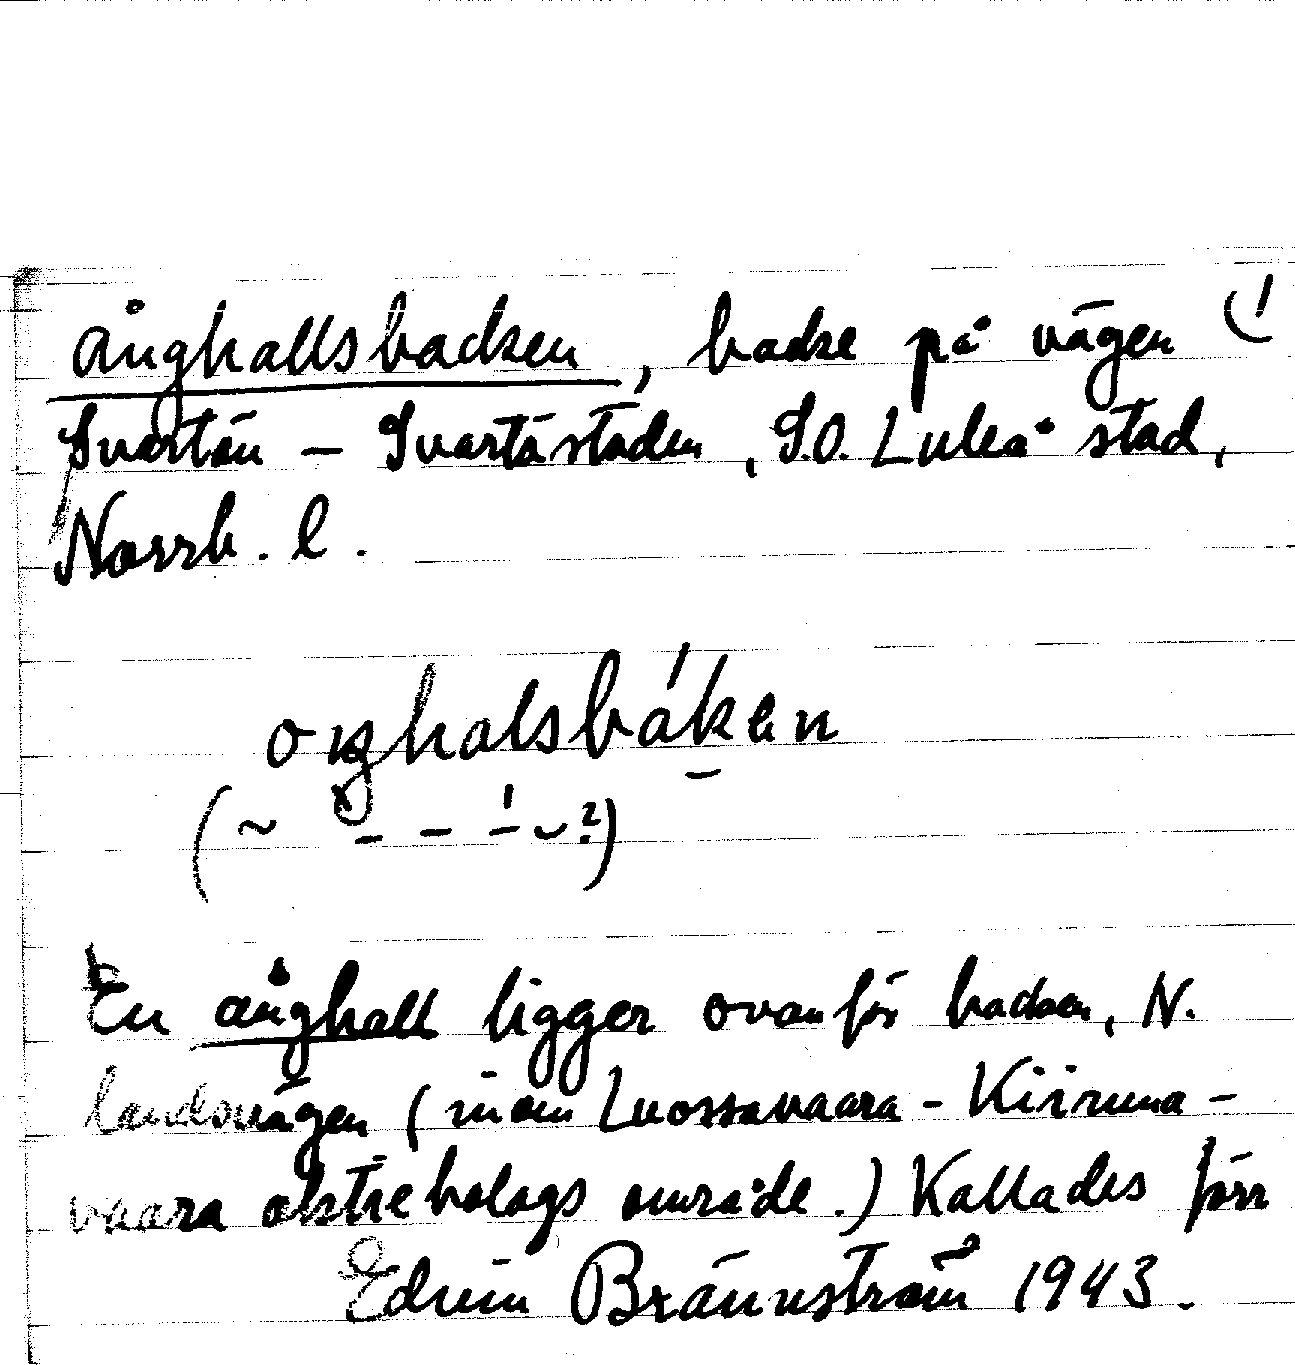 ånghallsbacken, backe på vägen (!
Svartön – Svartöstaden, S.O. Luleå stad,
Norrb. l.
oŋhalsbákən
(~ – – –́ ⌣?)
En ånghall ligger ovanför backen, N.
landsvägen (inom Luossavaara - Kiiruna -
vaara aktiebolags område.) Kallades förr
Edvin Brännström 1943.